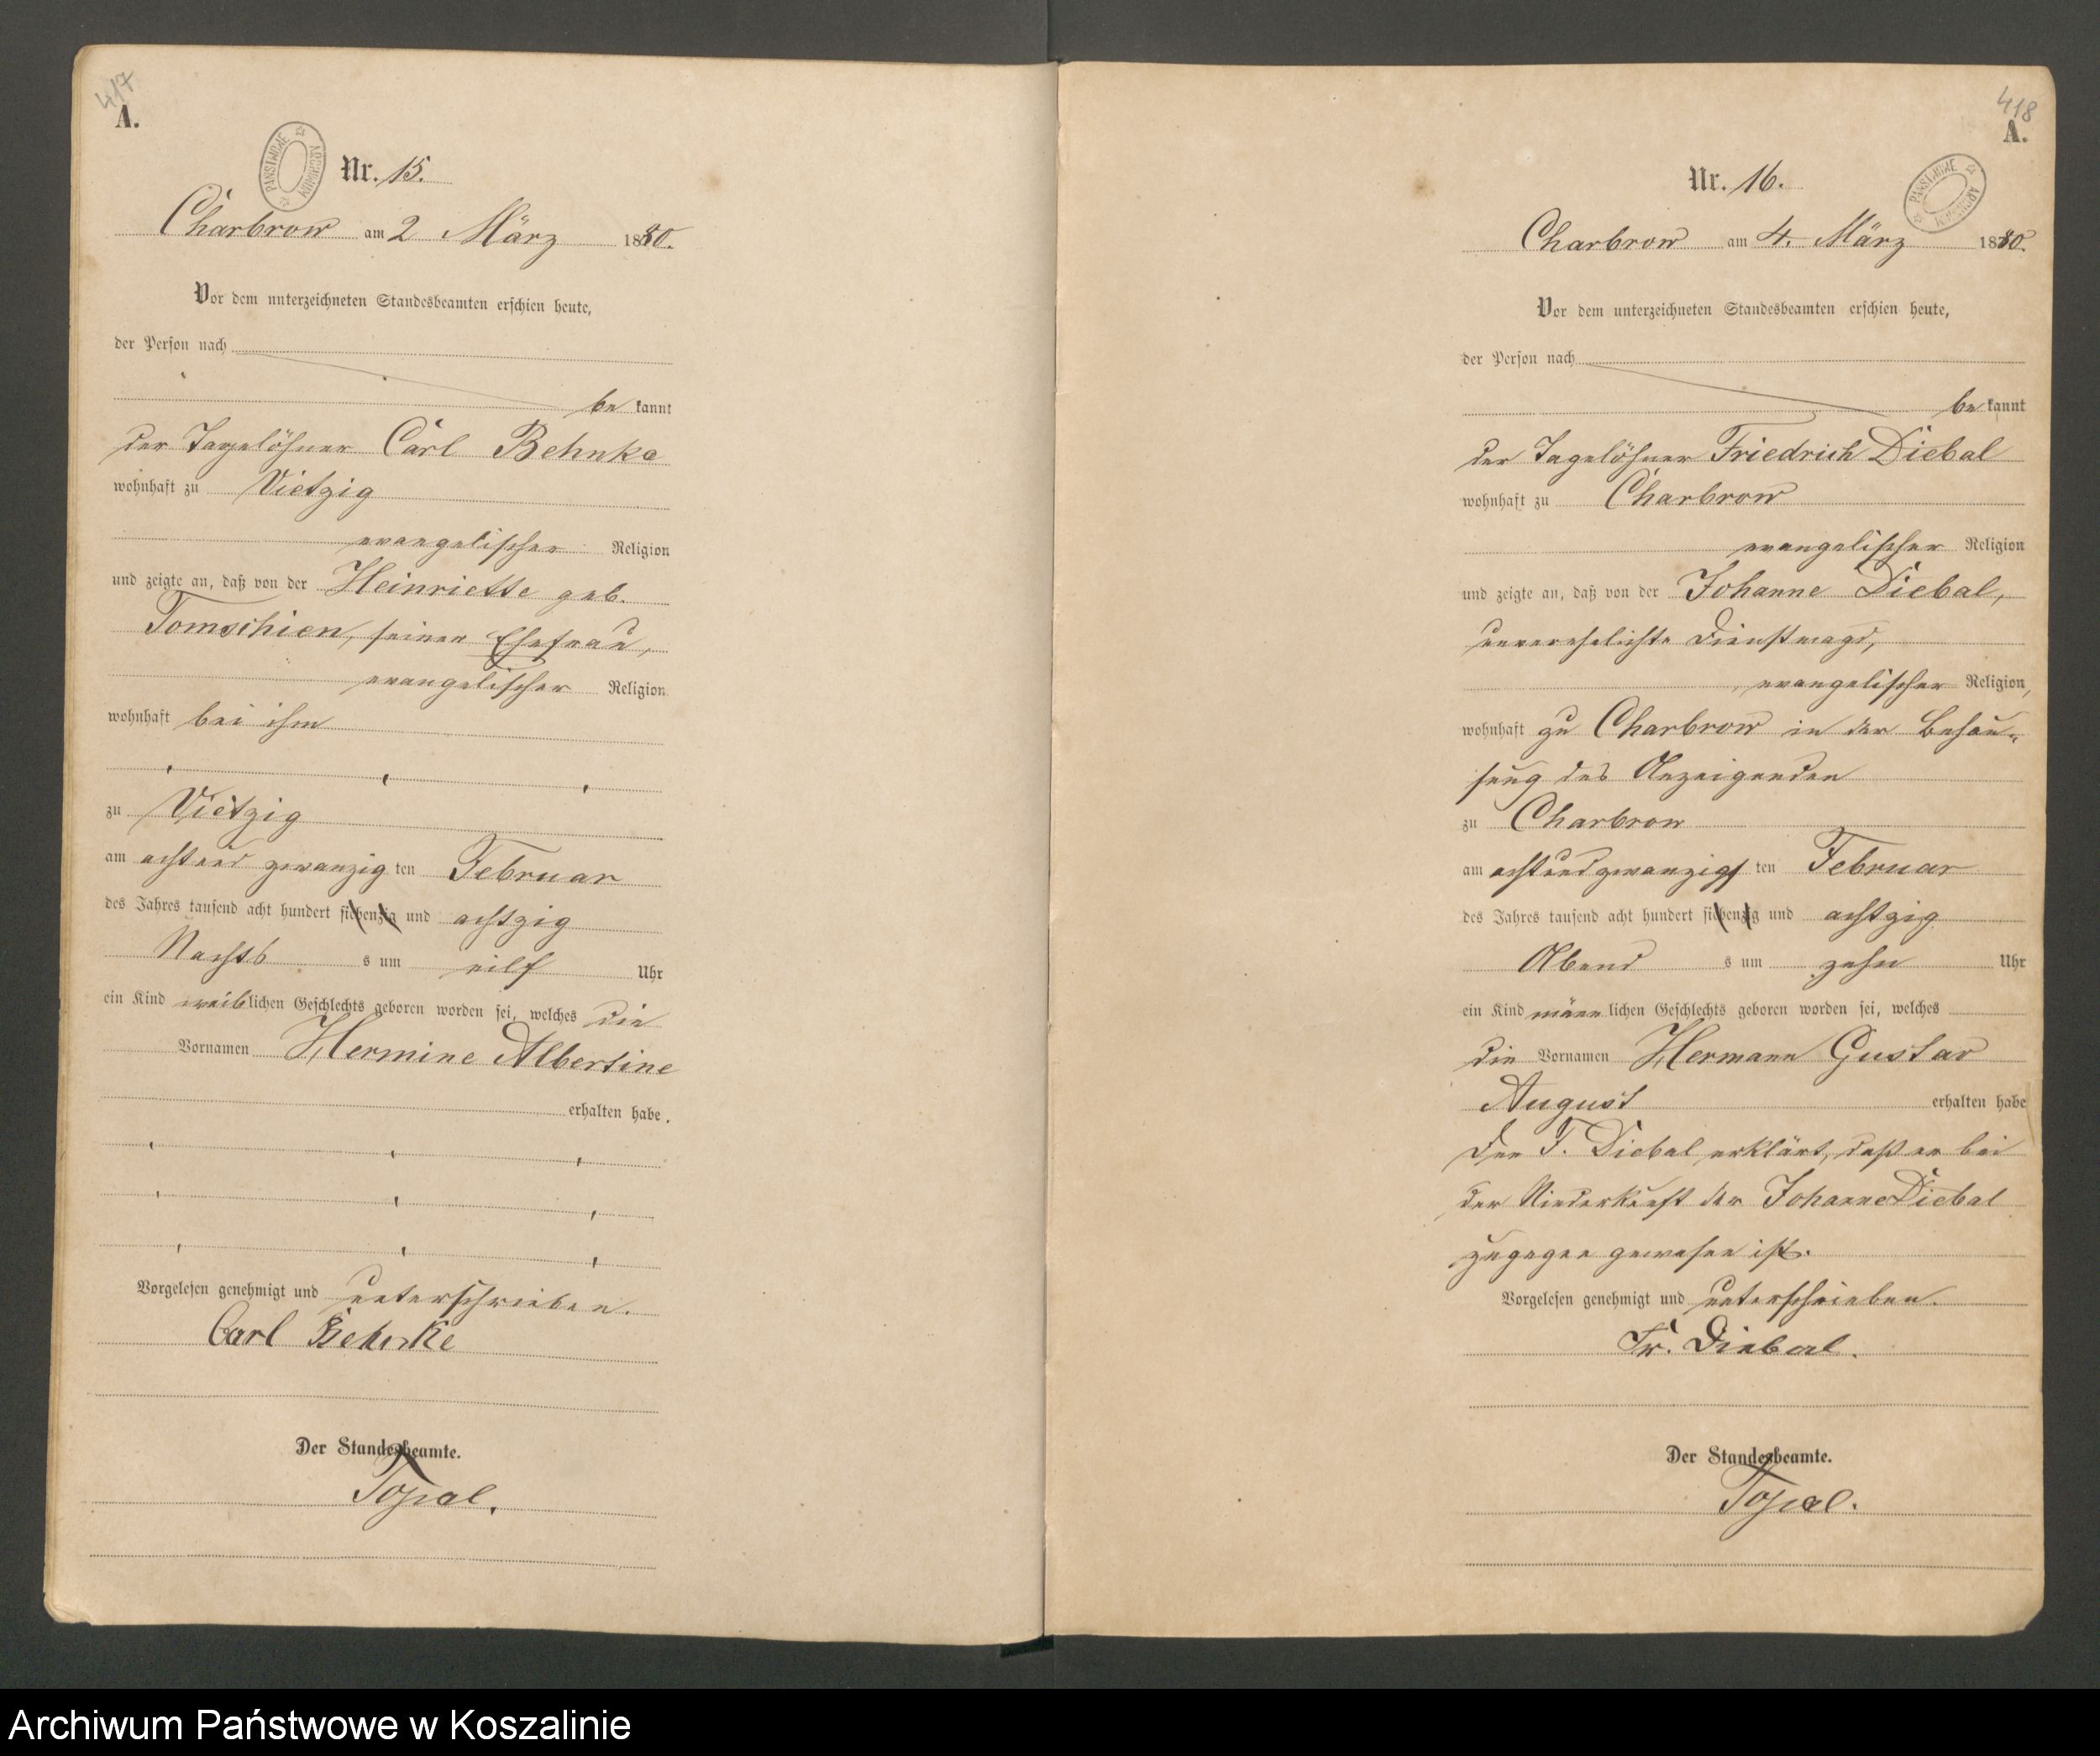 417
A.
PAŃSTWOWE ARCHIWUM
Nr. 15.
Charbrow am 2 März 1880.
Vor dem unterzeichneten Standesbeamten erschien heute,
der Person nach
be kannt
der Tagelöhner Carl Behnke
wohnhaft zu Vietzig
evangelischer Religion
und zeigte an, daß von der Heinriette geb.
Tomschien, seiner Ehefrau,
evangelischer Religion
wohnhaft bei ihm
zu Vietzig
am acht und zwanzig ten Februar
des Jahres tausend acht hundert siebenzig und achtzig
Nachts s um eilf Uhr
ein Kind weiblichen Geschlechts geboren worden sei, welches die
Vornamen Hermine Albertine
erhalten habe.
Vorgelesen genehmigt und unterschrieben.
Carl Behnke
Der Standesbeamte.
Topal.
418
A.
PAŃSTWOWE ARCHIWUM
Nr. 16.
Charbrow am 4. März 1880.
Vor dem unterzeichneten Standesbeamten erschien heute,
der Person nach
be kannt
der Tagelöhner Friedrich Diebal
wohnhaft zu Charbrow
evangelischer Religion
und zeigte an, daß von der Johanne Diebal,
unverehelichte Dienstmagd,
evangelischer Religion,
wohnhaft zu Charbrow in der Behau-
sung des Anzeigenden
zu Charbrow
am acht und zwanzigs ten Februar
des Jahres tausend acht hundert siebenzig und achtzig
Abend s um zehn Uhr
ein Kind männ lichen Geschlechts geboren worden sei, welches
die Vornamen Hermann Gustav
August erhalten habe
Der F. Diebal erklärt, daß er bei
der Niederkunft der Johanne Diebal
zugegen gewesen ist.
Vorgelesen genehmigt und unterschrieben.
Fr. Diebal.
Der Standesbeamte.
Topal.
Archiwum Państwowe w Koszalinie